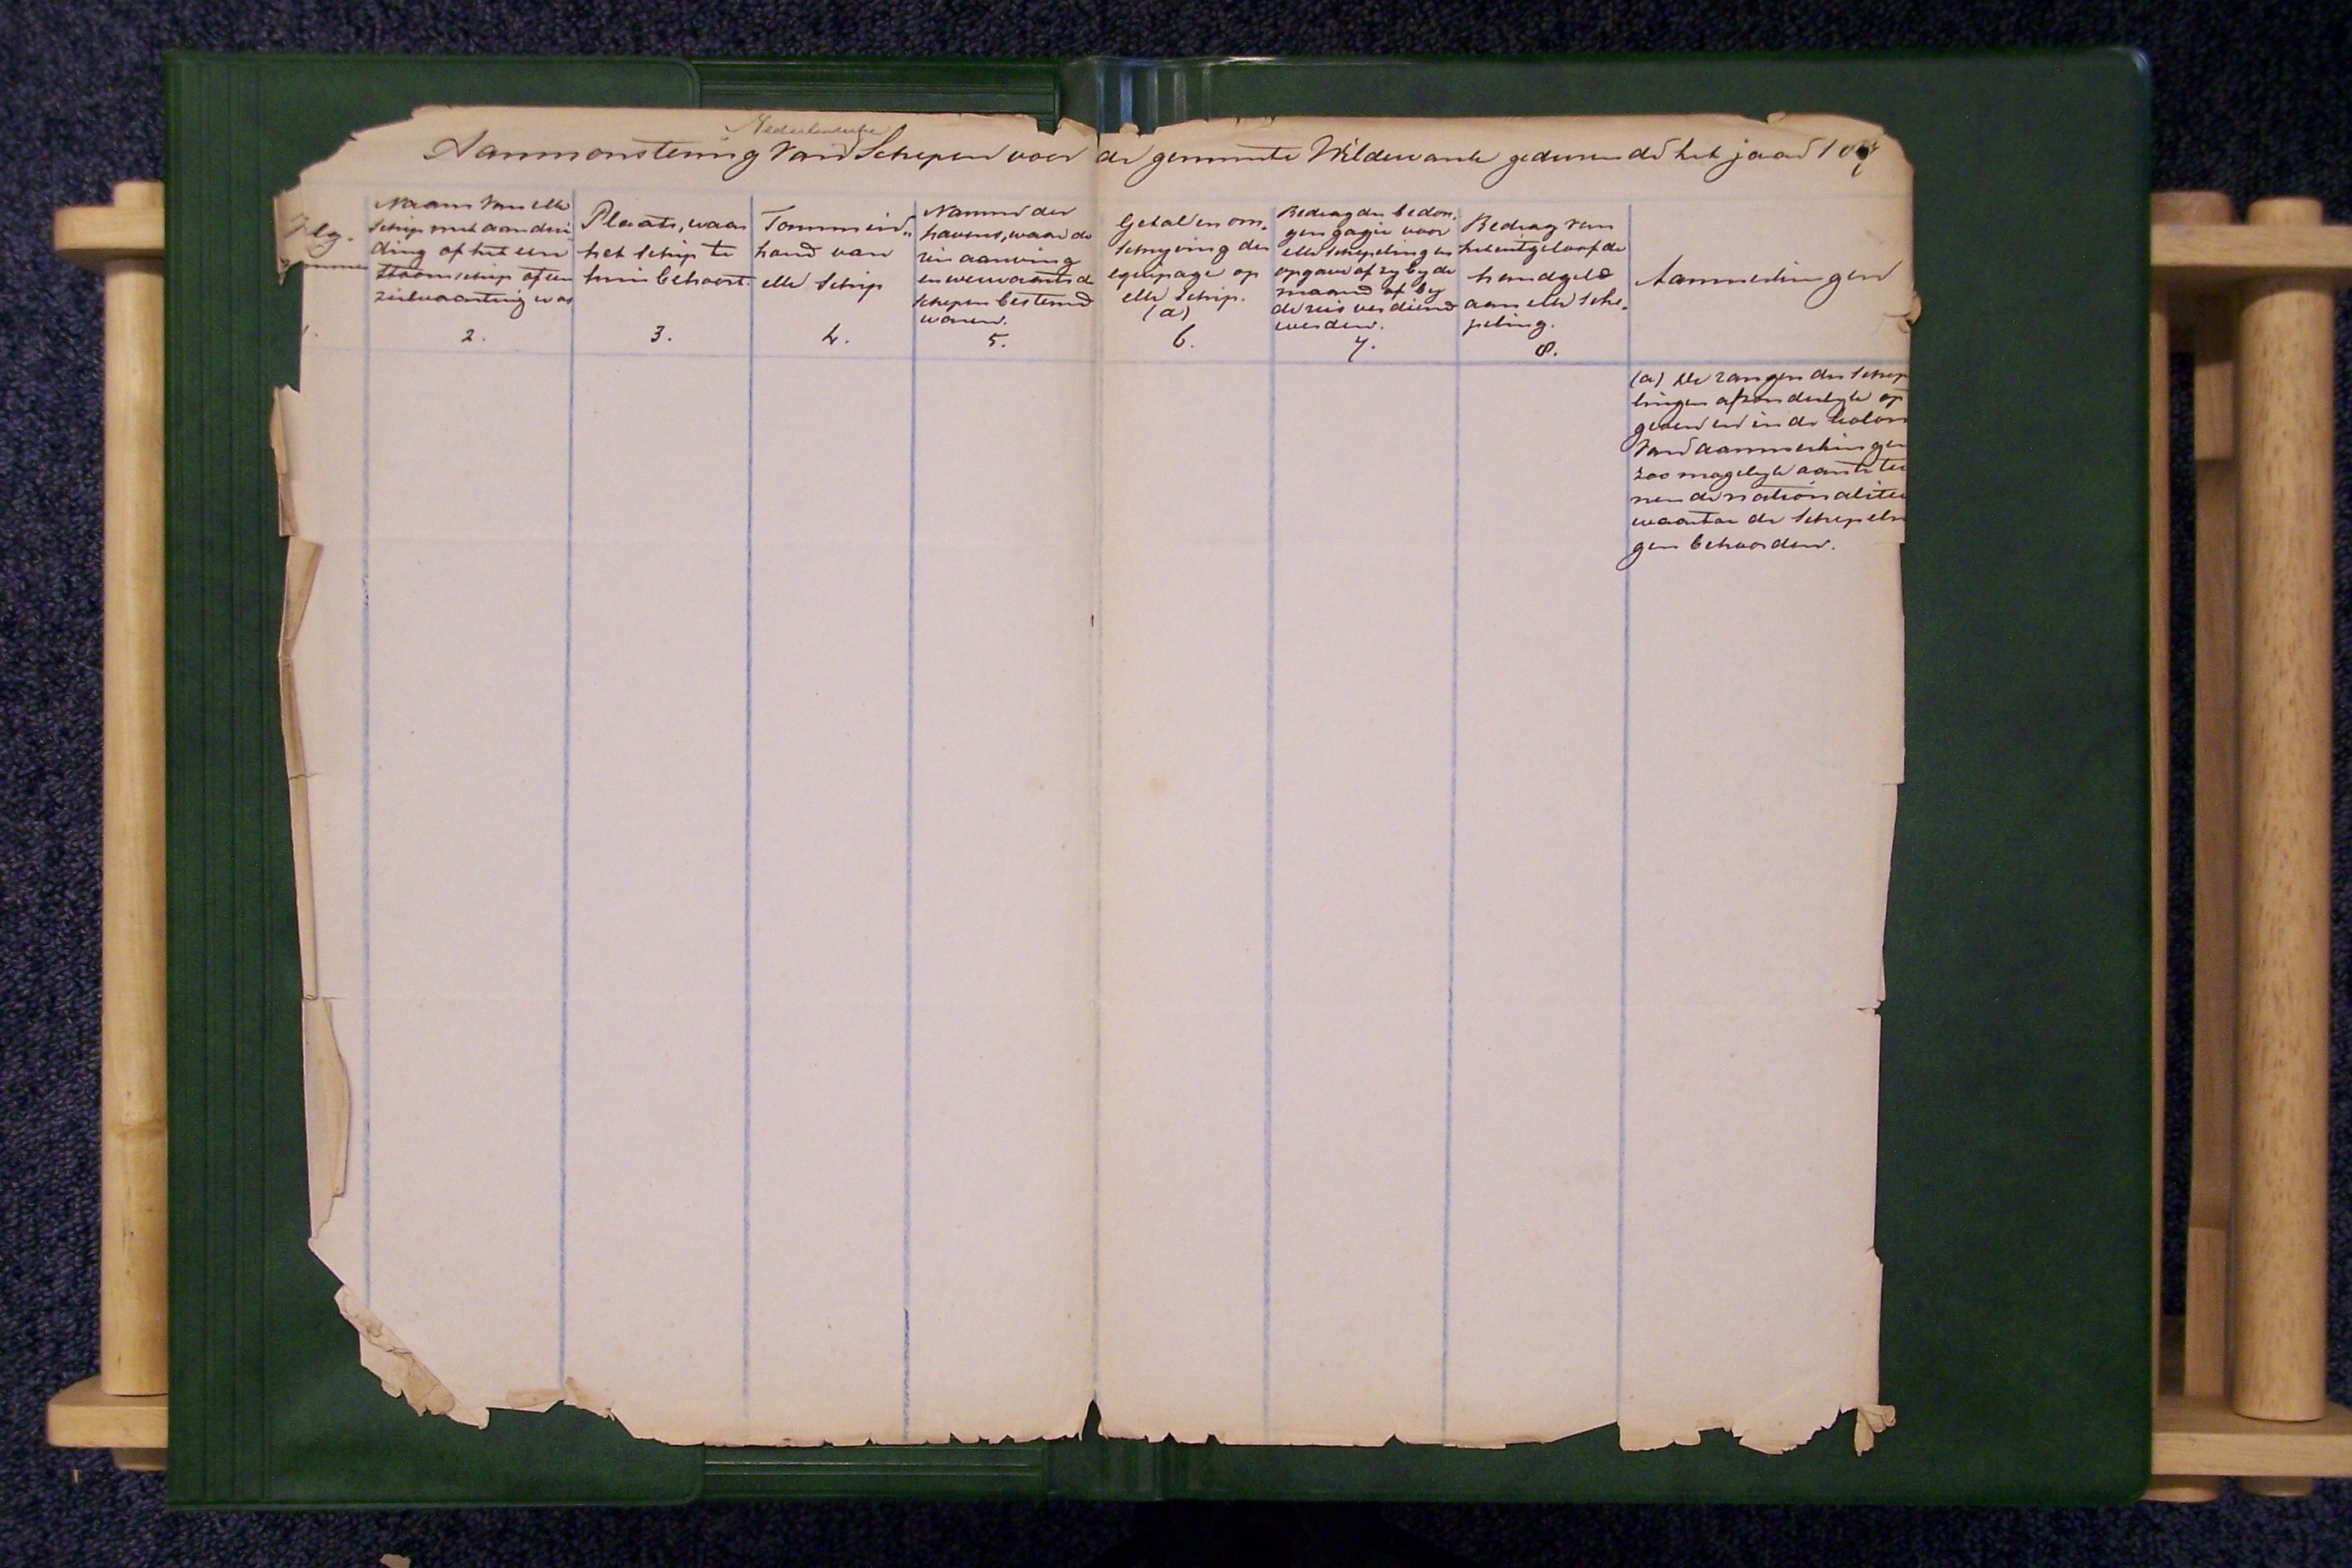 Nederlandsche
Aanmonstering van Schepen voor de gemeente Wildervank gedurende het jaar 18
Volg-
nommer
1.
Naam van elk
schip met aandui-
ding of het een
stoomschip of een
zeilvaartuig was
2.
Plaats, waar
het schip te
huis behoort.
3.
Tonnenin„
houd van
elk schip
4.
Namen der
havens, waar de
reis aanving
en werwaarts de
schepen bestemd
waren.
5.
Getal en om-
schryving der
equipage op
elk schip.
(a)
6.
Bedrag der bedon-
gen gagie voor
elk schepeling en
opgave of zy by de
maand of by
de reis verdiend
werden.
7.
Bedrag van
het uitgeloofde
handgeld
aan elk sche-
peling.
8.
Aanmerkingen
(a) De rangen der schepe
lingen afzonderlyk op
geven en in de kolom
van aanmerkingen
zoo mogelyk aan te tee
nen de nationalitei
waartoe de schepelin
gen behoorden.